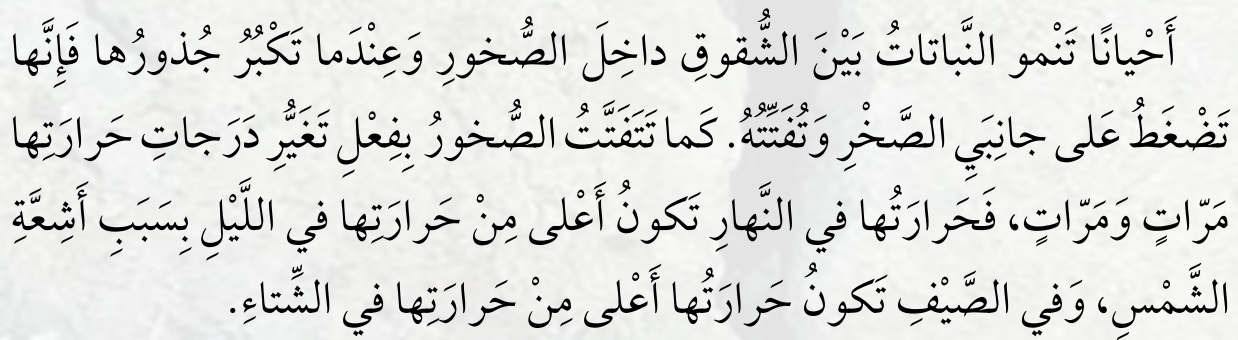 أَحْيانًا تَنْمو النَّباتاتُ بَيْنَ الشُّقوقِ داخِلَ الصُّخورِ وَعِنْدَما تَكْبُرُ جُذورُها فَإِنَّها
تَضْغَطُ عَلى جانِبَيِ الصَّخْرِ وَتُفَتِّتُهُ. كَما تَتَفَتَّتُ الصُّخورُ بِفِعْلِ تَغَيُّرِ دَرَجاتِ حَرارَتِها
مَرّاتٍ وَمَرّاتٍ، فَحَرارَتُها في النَّهارِ تَكونُ أَعْلى مِنْ حَرارَتِها في اللَّيْلِ بِسَبَبِ أَشِعَّةِ
الشَّمْسِ، وَفي الصَّيْفِ تَكونُ حَرارَتُها أَعْلى مِنْ حَرارَتِها في الشِّتاءِ.